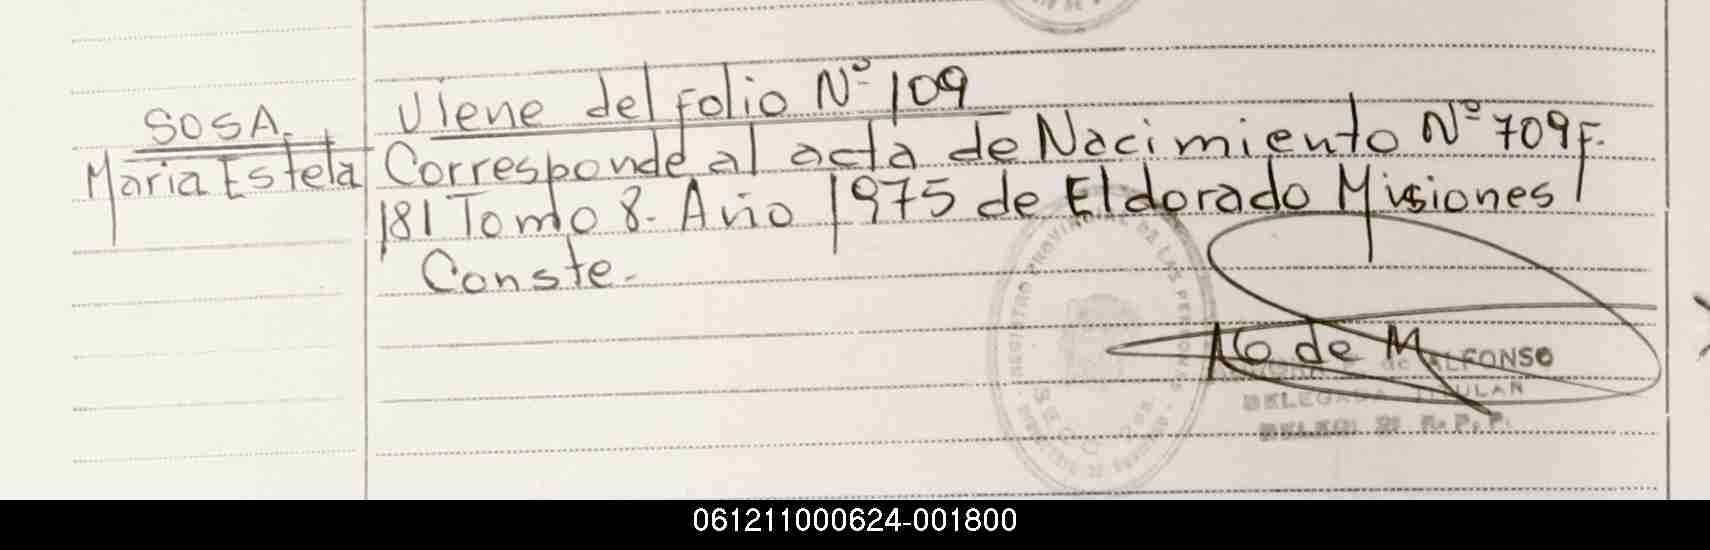 SOSA.
Maria Estela
Viene del Folio Nº 109
Corresponde al acta de Nacimiento Nº 709 F.
181 Tomo 8. Año 1975 de Eldorado Misiones
Conste.
de M
de ALFONSO
DELEGADA TITULAR
R. P. P.
REGISTRO PROVINCIAL DE LAS PERSONAS
061211000624-001800